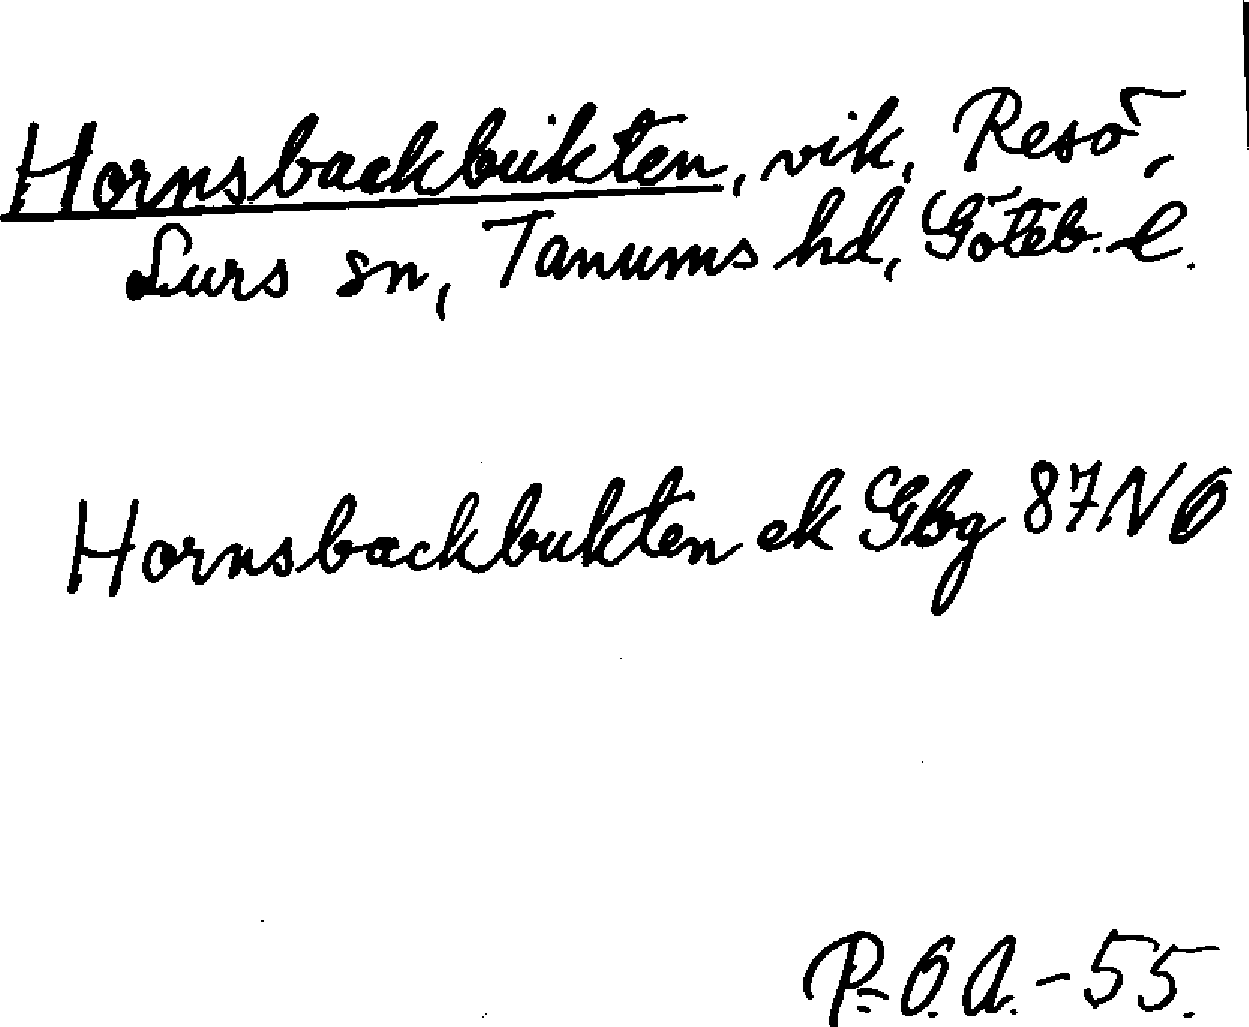 Hornsbackbukten, vik, Resö,
Lurs sn, Tanums hd, Göteb. l.
Hornsbackbukten ek Gbg 87NO
P.O.A.-55.